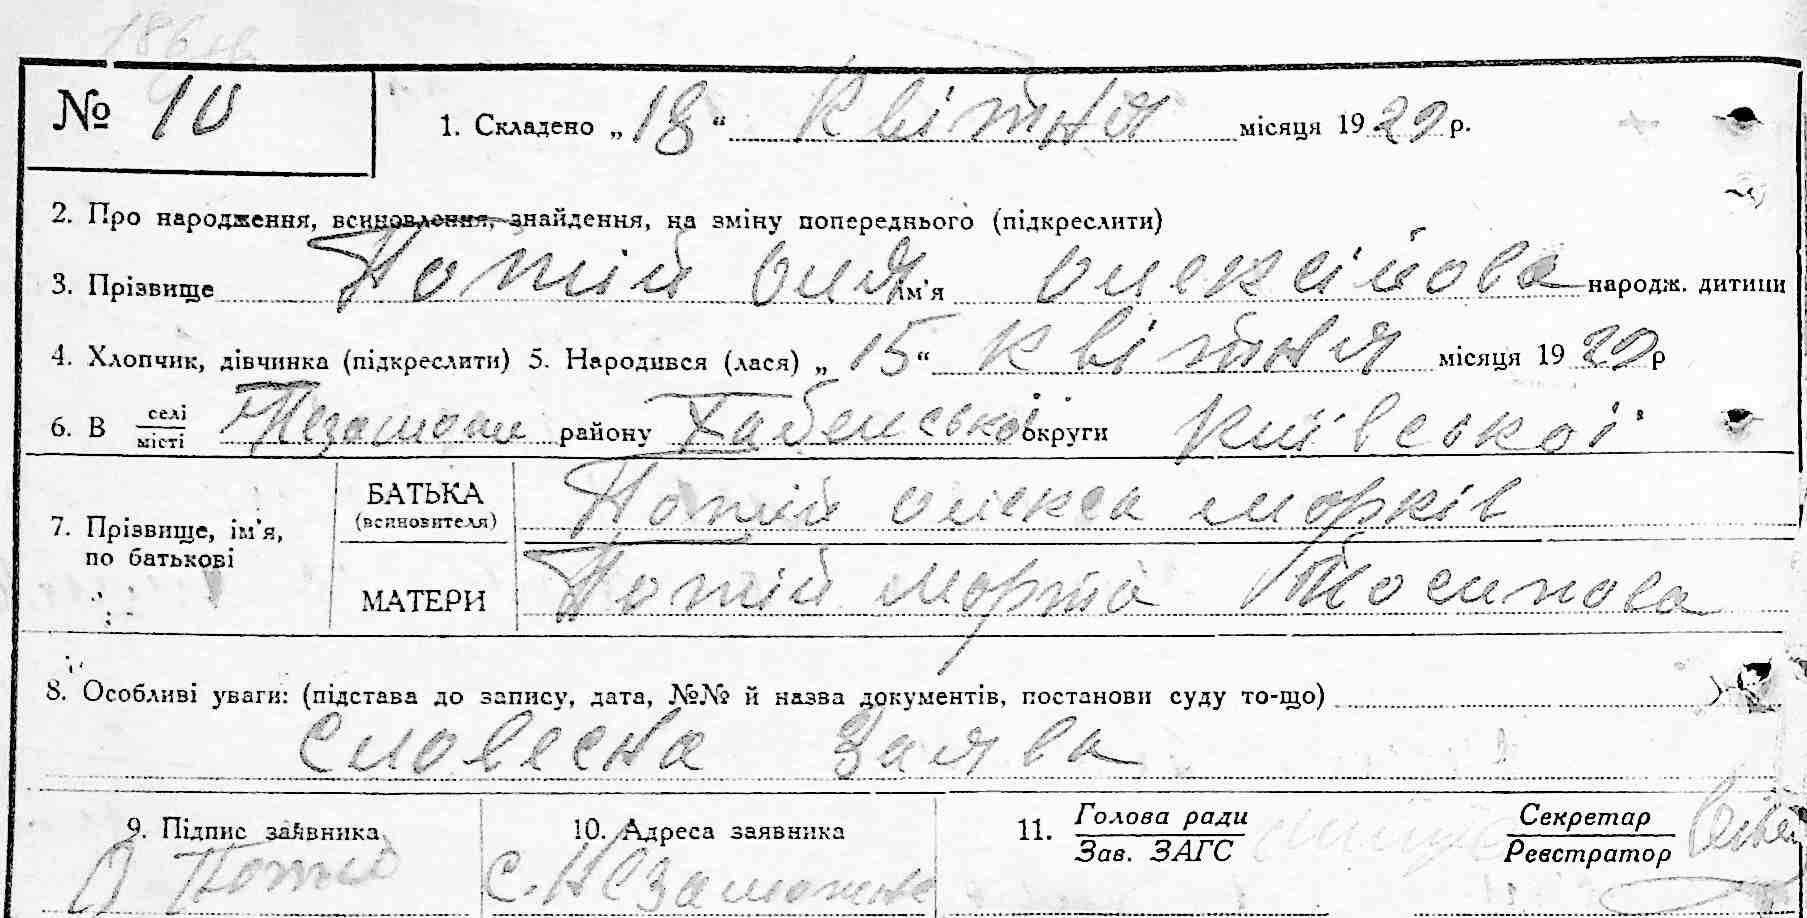 № 10
1. Складено „ 18 “ Квітня місяця 1929 р.
2. Про народження, всиновлення, знайдення, на зміну попереднього (підкреслити)
3. Прізвище Потій Оля ім'я Олексійова народж. дитини
4. Хлопчик, дівчинка (підкреслити) 5. Народився (лася) „ 15 “ Квітня місяця 1929 р
6. В селі/місті району Хабенсько округи Київської
7. Прізвище, ім'я, по батькові
БАТЬКА (всиновителя) Потій Олекса Марків
МАТЕРИ Потій Марта Йосипова
8. Особливі уваги: (підстава до запису, дата, №№ й назва документів, постанови суду то-що)
Словесна Заява
9. Підпис заявника
Потій
10. Адреса заявника
с. Незаможня
11. Голова ради
Зав. ЗАГС
Секретар
Реєстратор